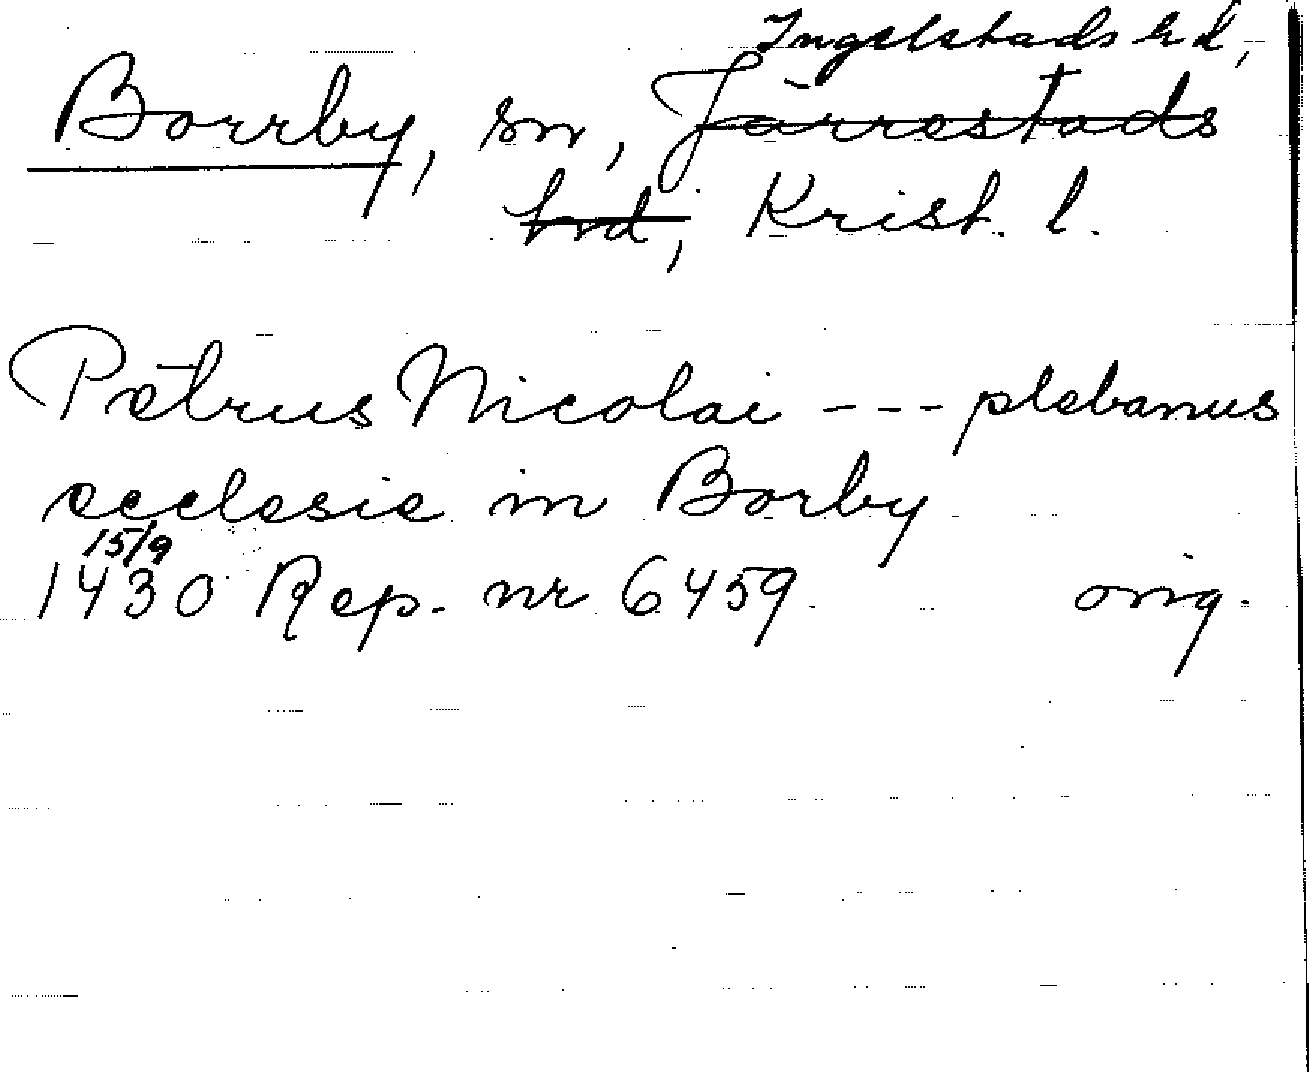 Ingelstads hd,
Borrby, sn, Järrestads
hrd, Krist. l.
Petrus Nicolai --- plebanus
ecclesie in Borby
15/9
1430 Rep. nr 6459 orig.